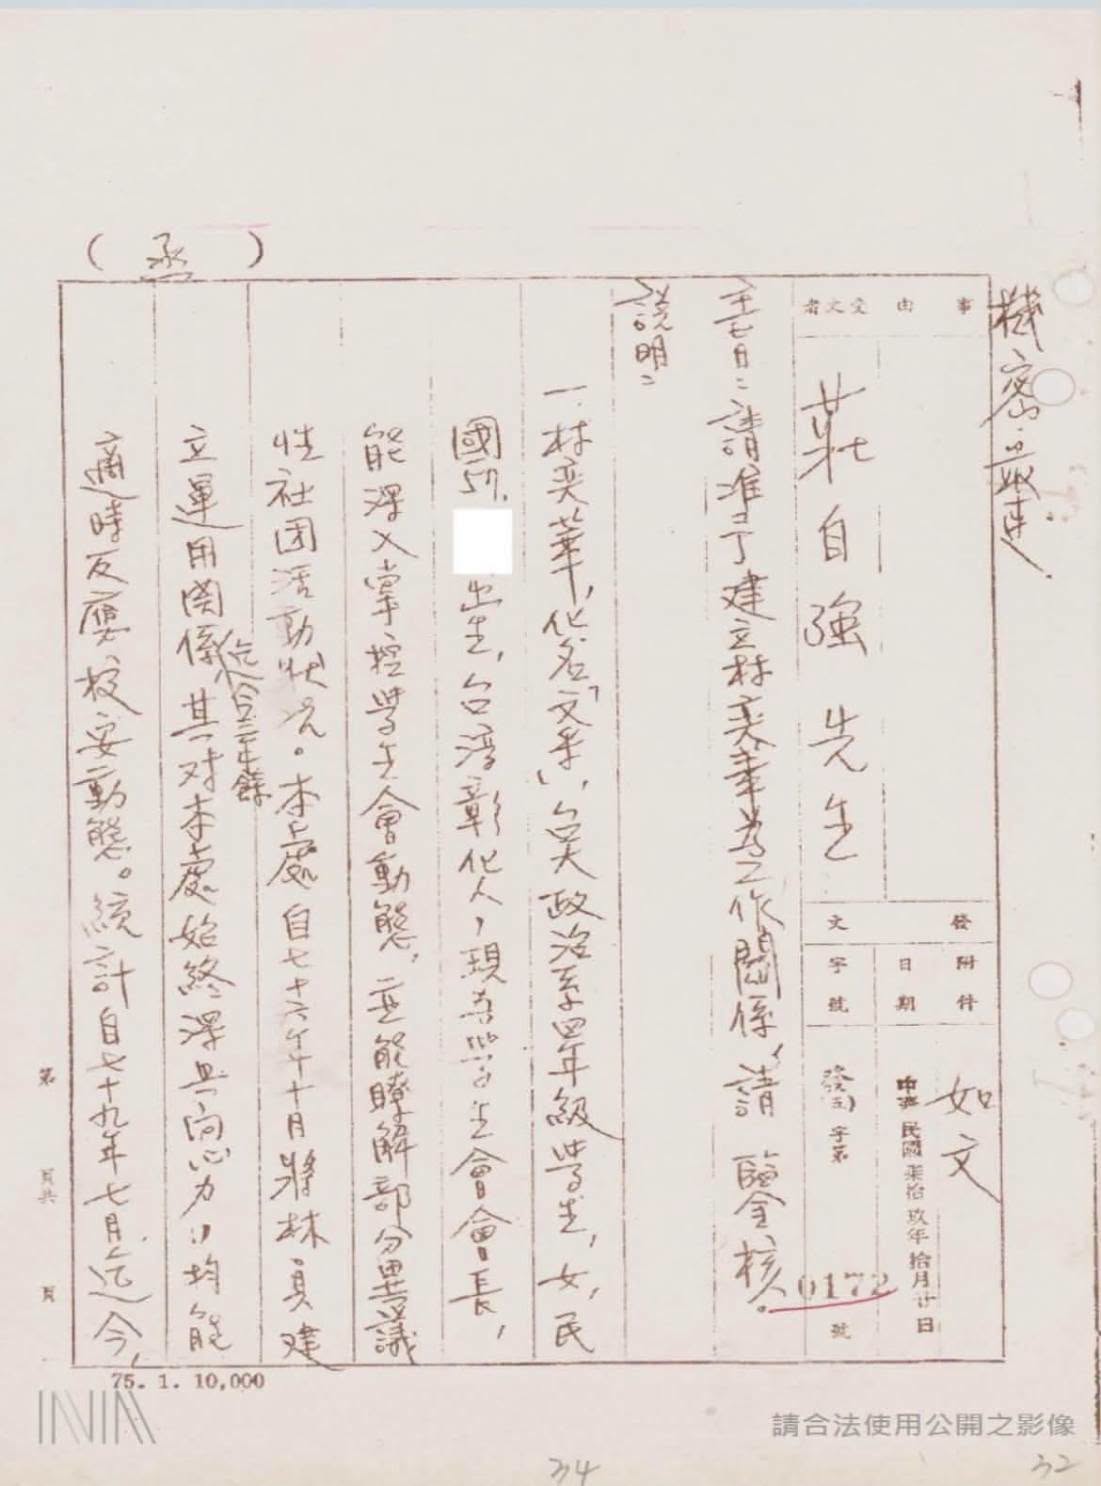 機密・最速.
(丞)
事由
受文者
莊自強先生
發文
附件
如文
日期
中華民國柒拾玖年拾月廿日
字號
字第
0172
號
主旨：請准予建立林奕華為工作關係，請鑒核。
說明：
一.林奕華，化名「文華」，台大政治系四年級學生，女，民
國57.
出生，台灣彰化人，現為學生會會長，
能深入掌控學生會動態，並能瞭解部分異議
性社团活動狀況。本處自七十六年十月將林員建
立運用関係
迄今三年餘
其对本處始終深具向心力，均能
適時反應校安動態。統計自七十九年七月迄今，
第 頁共 頁
75. 1. 10,000
請合法使用公開之影像
34
32